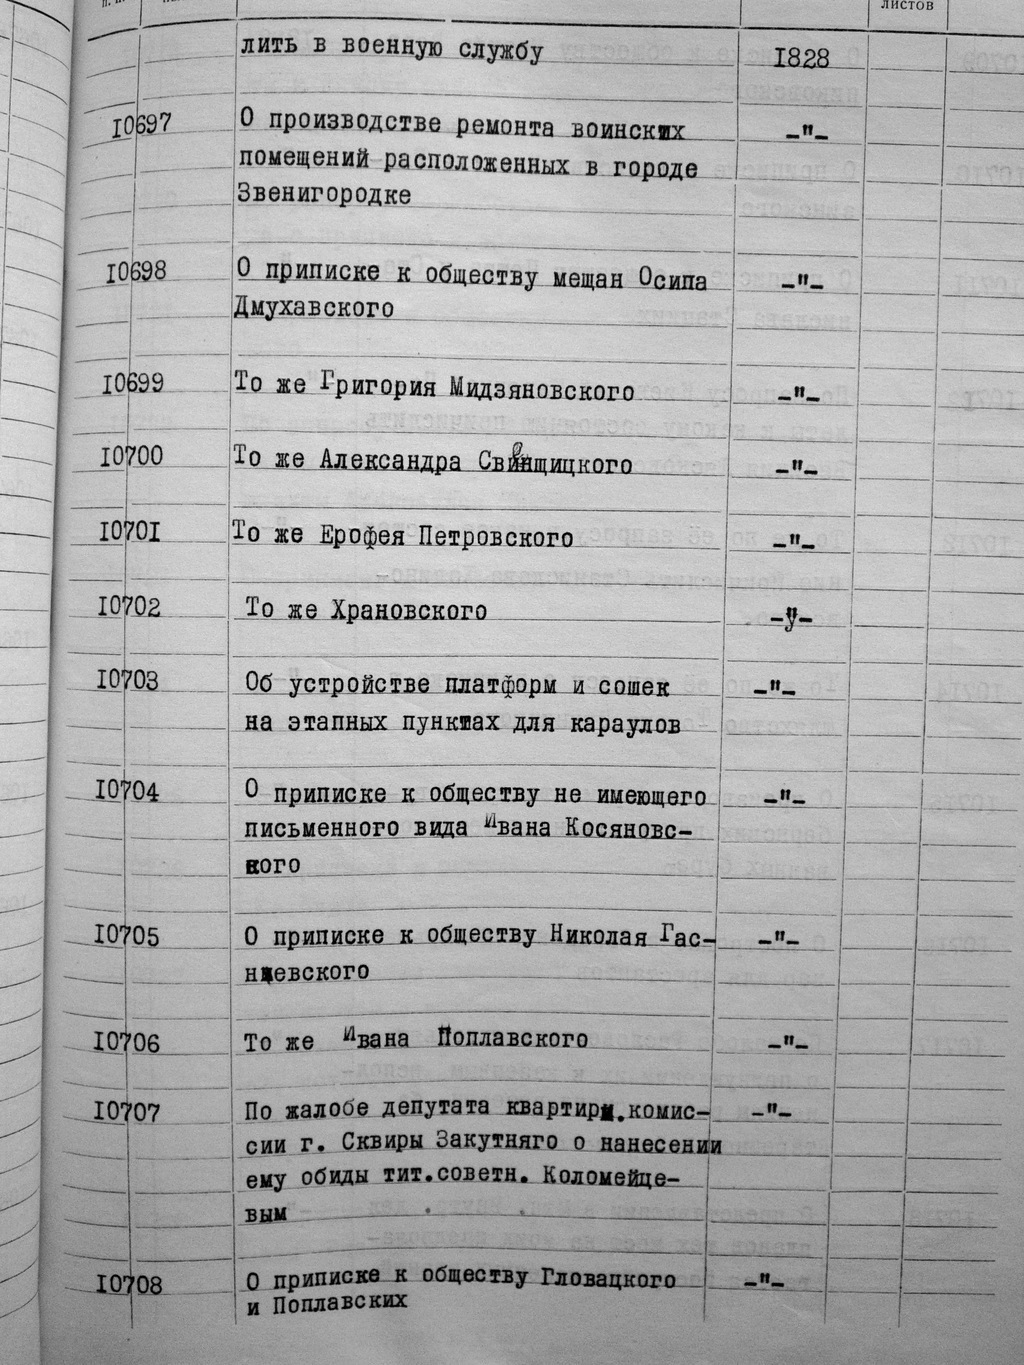 листов
лить в военную службу 1828
10697 О производстве ремонта воинских -"-
помещений расположенных в городе
Звенигородке
10698 О приписке к обществу мещан Осипа -"-
Дмухавского
10699 То же Григория Мидзяновского -"-
10700 То же Александра -"-
10701 То же Ерофея Петровского -"-
10702 То же Храновского -"-
10703 Об устройстве платформ и сошек -"-
на этапных пунктах для караулов
10704 О приписке к обществу не имеющего -"-
письменного вида Ивана Косяновс-
кого
10705 О приписке к обществу Николая Гас- -"-
нцевского
10706 То же Ивана Поплавского -"-
10707 По жалобе депутата квартирн.комис- -"-
сии г. Сквиры Закутняго о нанесении
ему обиды тит.советн. Коломейце-
вым
10708 О приписке к обществу Гловацкого -"-
и Поплавских